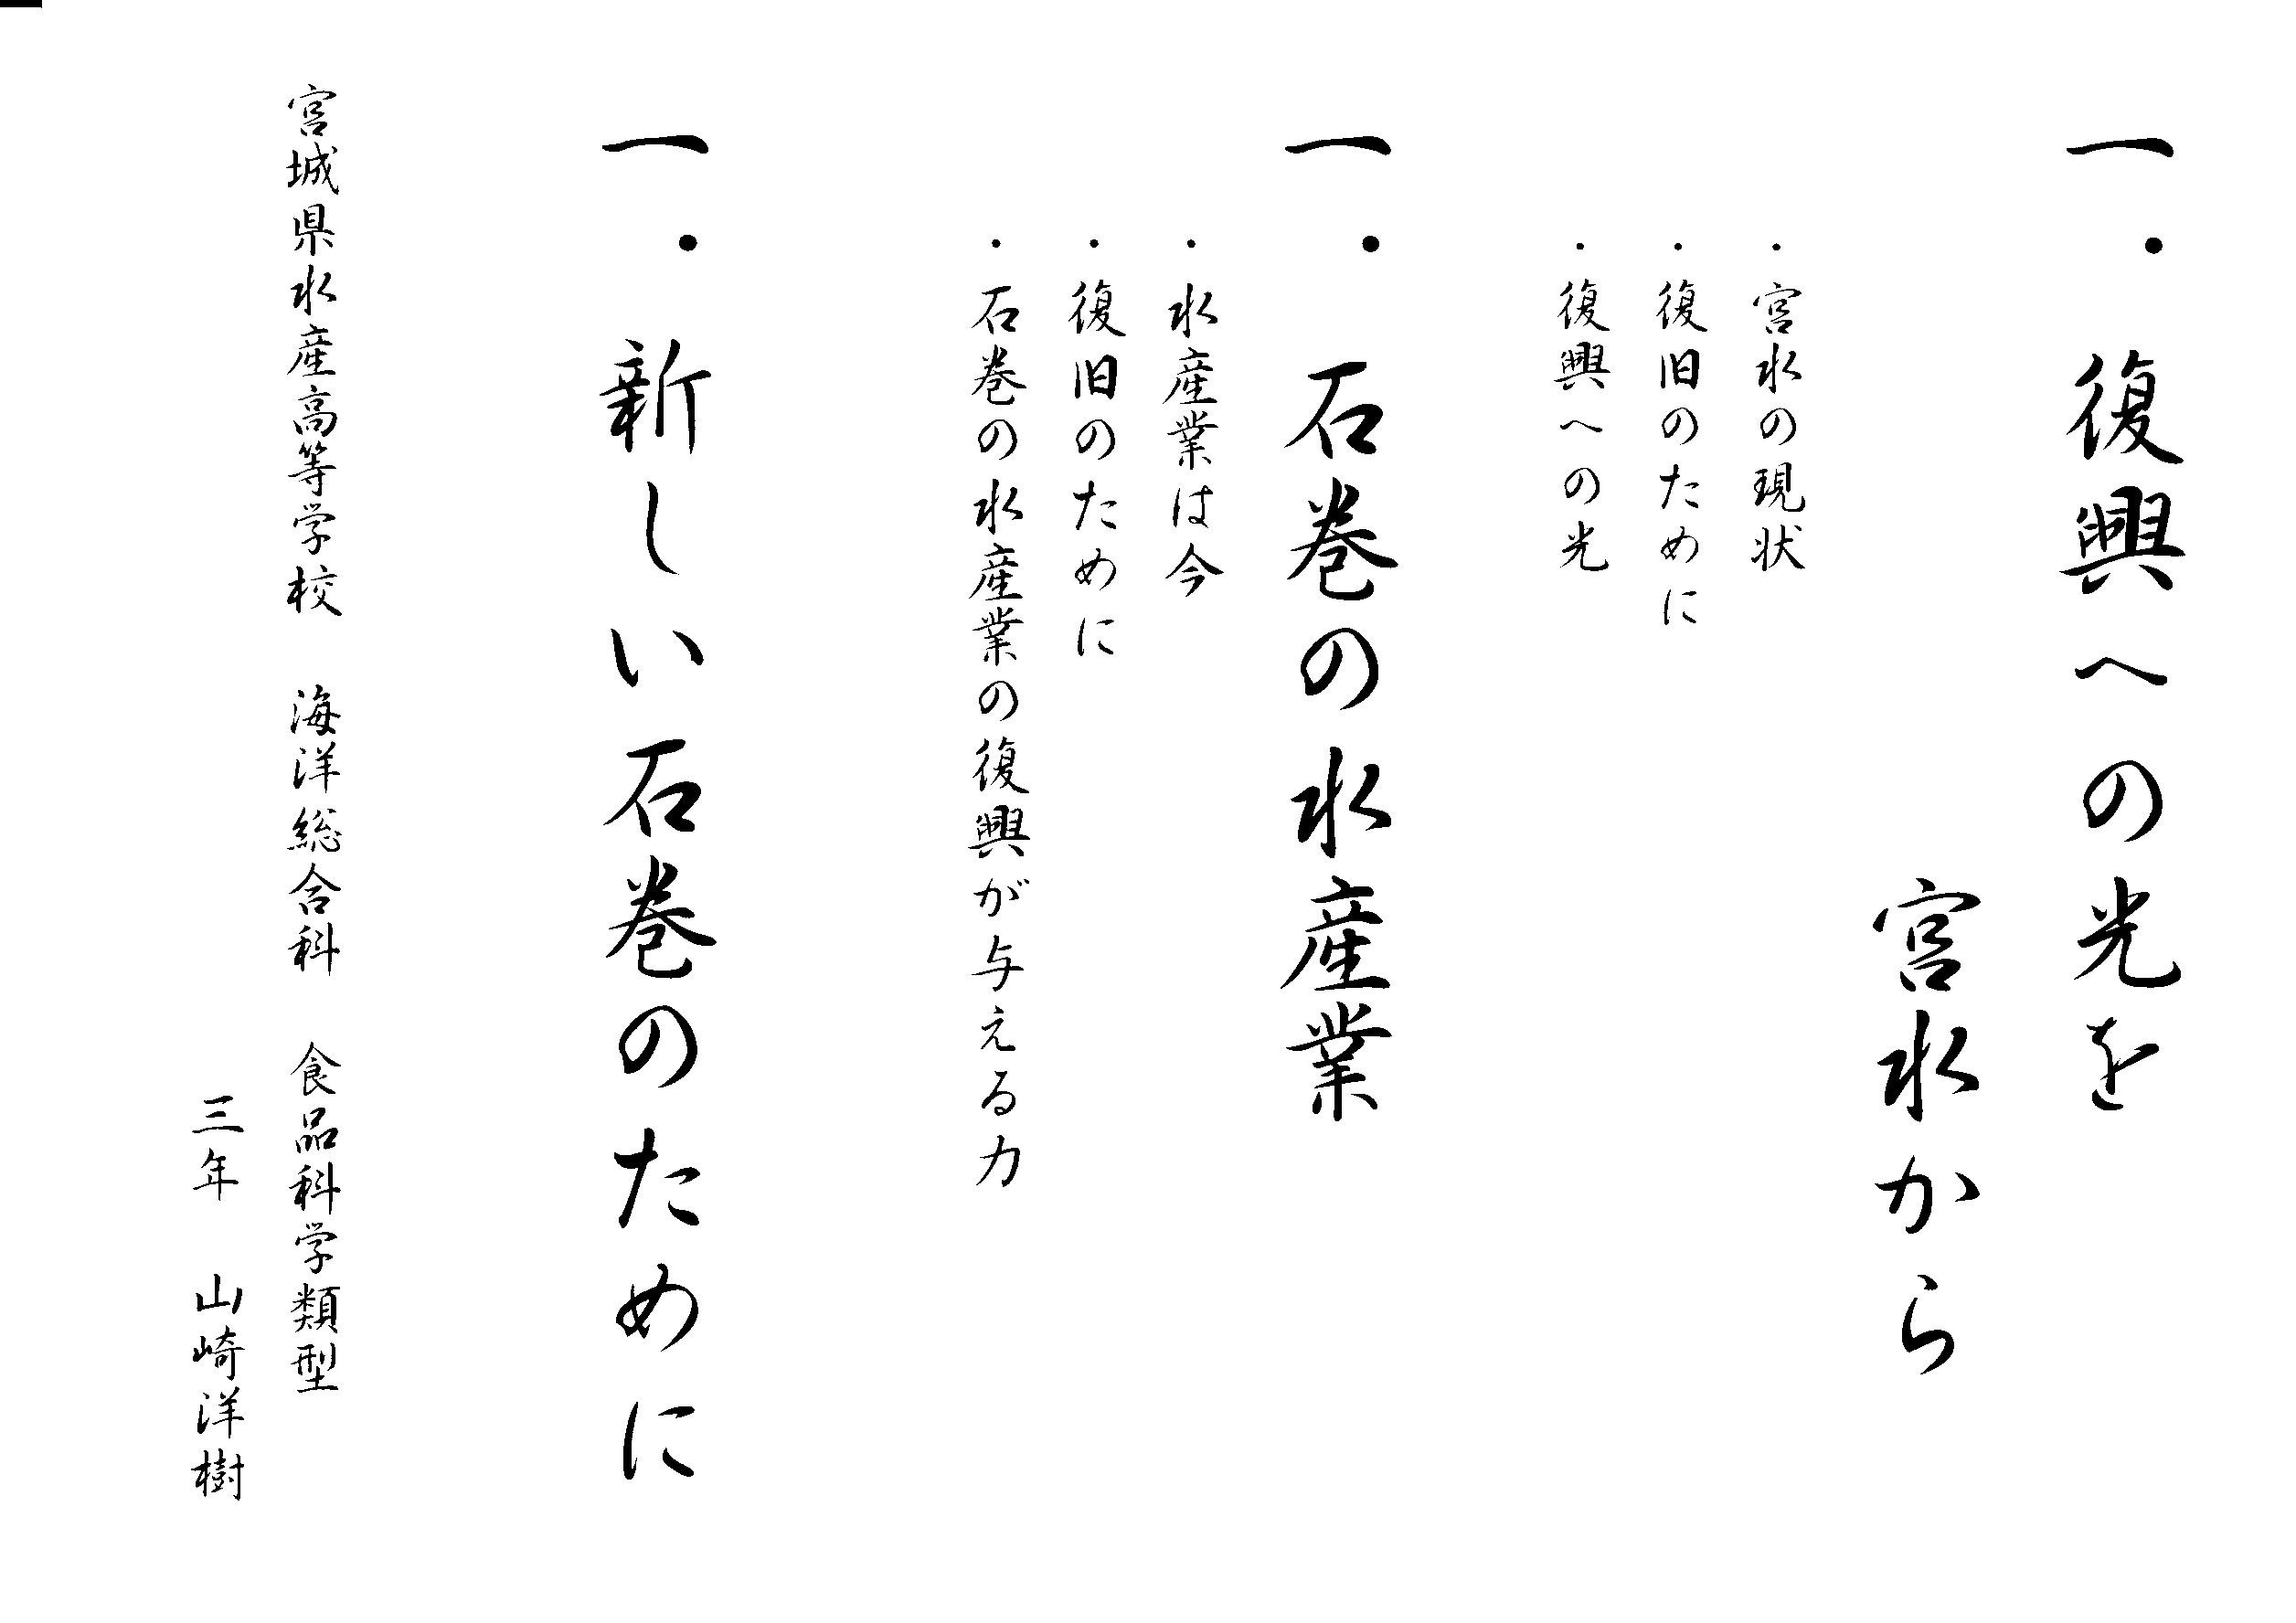 一．復興への光を
宮水から
・宮水の現状
・復旧のために
・復興への光
一．石巻の水産業
・水産業は今
・復旧のために
・石巻の水産業の復興が与える力
一．新しい石巻のために
宮城県水産高等学校　海洋総合科　食品科学類型
三年　山崎洋樹